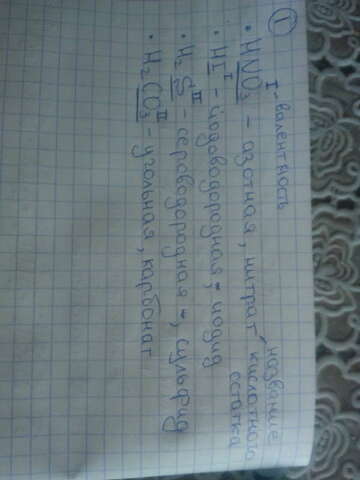 ① I-валентность
название
• HNO₃ – азотная, нитрат кислотного остатка
• HI – йодоводородная, – иодид
• H₂S – сероводородная –, сульфид
• H₂CO₃ – угольная, карбонат